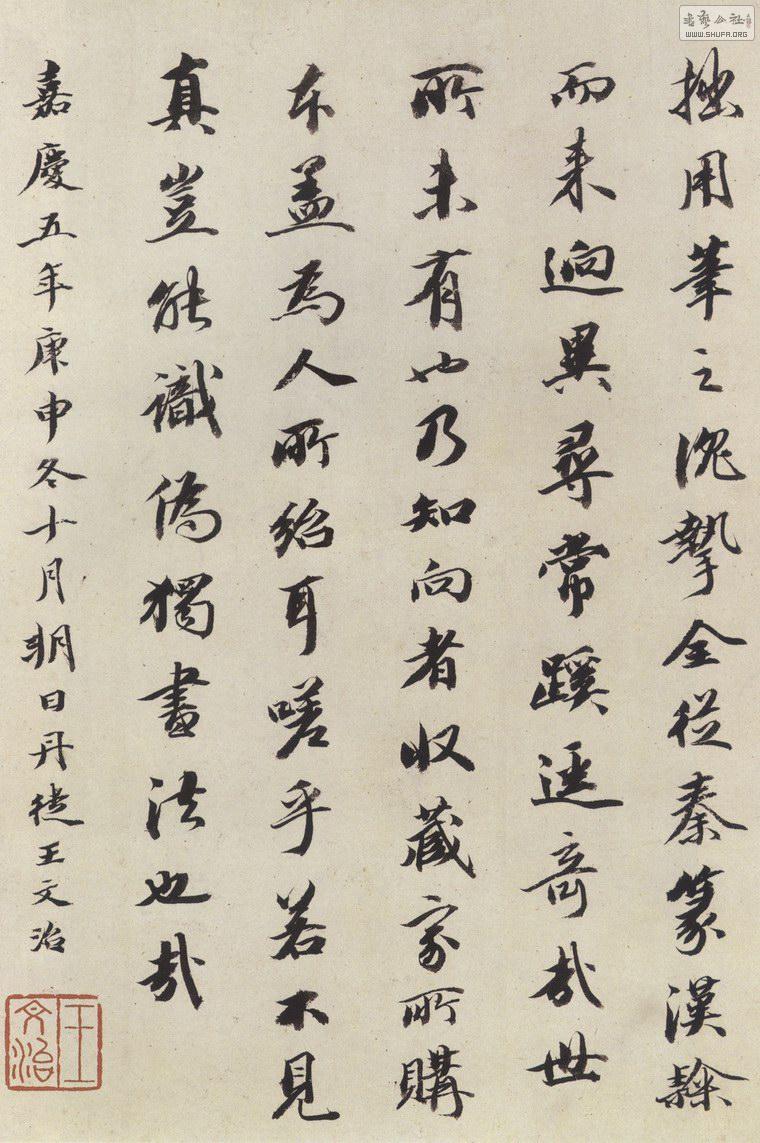 拙用筆之沈摯全從秦篆漢隸
而来迥異尋常蹊逕奇哉世
所未有也乃知向者收藏家所購
本盖為人所紿耳嗟乎若不見
真豈能識偽獨書法也哉
嘉慶五年庚申冬十月朔日丹徒王文治
王文治
书艺公社
WWW.SHUFA.ORG